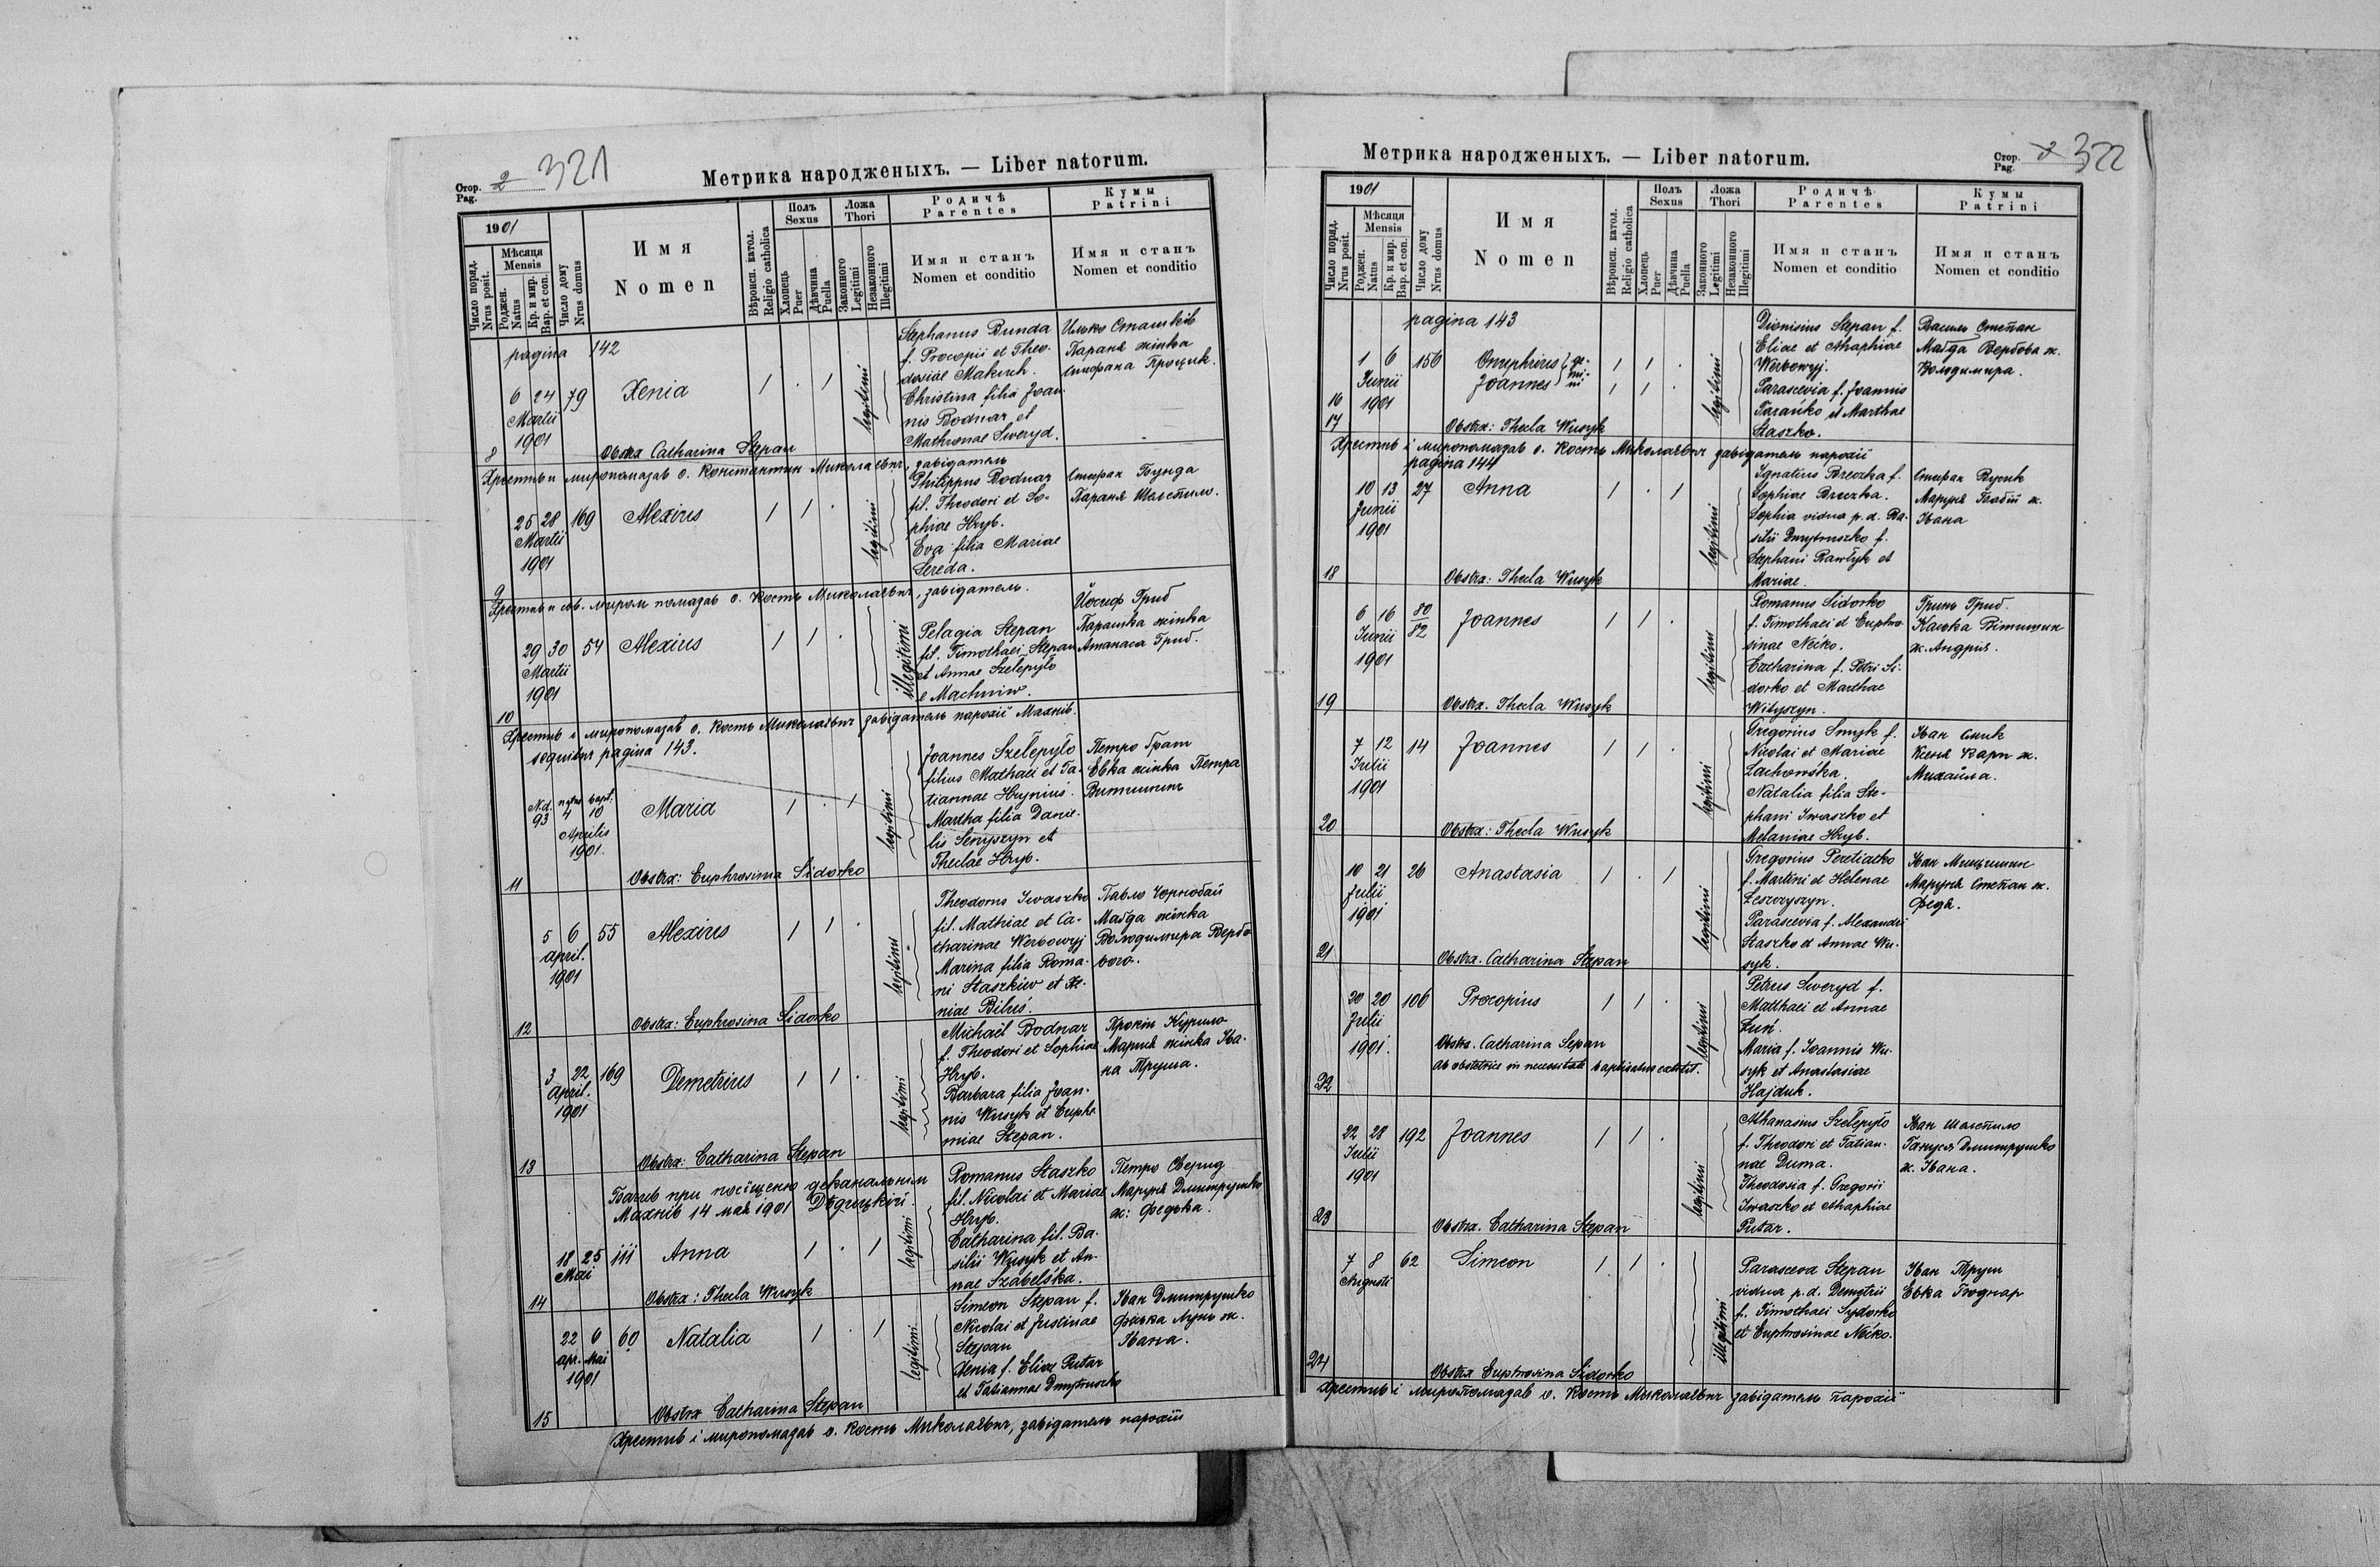 Стор.
Pag. 2 321
Метрика народженыхъ. — Liber natorum.
1901
Число поряд.
Nrus posit.
Мѣсяця
Mensis
Роджен.
Natus
Кр. и мир.
Bap. et con.
Число дому
Nrus domus
Имя
Nomen
Вѣроисп. катол.
Religio catholica
Полъ
Sexus
Хлопець
Puer
Дѣвчина
Puella
Ложа
Thori
Законного
Legitimi
Незаконного
Illegitimi
Родичѣ
Parentes
Имя и станъ
Nomen et conditio
Кумы
Patrini
Имя и станъ
Nomen et conditio
pagina 142
8
6 24 79 Xenia 1 . 1 legitimi
Martii
1901
Stephanus Bunda
f. Procopii et Theo-
dosiae Makuch.
Christina filia Joan-
nis Bodnar et
Mathronae Sweryd.
Илько Сташків
Параня жінка
Стефана Процик.
Obstx Catharina Stepan
Хрестив и миропомазав о. Константин Миколаєвич, завідатель
9
25 28 169 Alexius 1 1 . legitimi
Martii
1901
Philippus Bodnar
fil. Theodori et So-
phiae Hryb.
Eva filia Mariae
Sereda.
Стефан Бунда
Параня Шелепило.
Хрестив и св. миром помазав о. Кость Миколаєвич, завідатель.
10
29 30 54 Alexius 1 1 . illegitimi
Martii
1901
Pelagia Stepan
fil. Timothaei Stepan
et Annae Szelepyło
e Machniw.
Йосиф Гриб
Парашка жінка
Атанаса Гриб.
Хрестив і миропомазав о. Кость Миколаєвич завідатель парохії Махнів.
sequitur pagina 143.
11
N.d. natus bapt.
93 4 10 Maria 1 . 1 legitimi
Aprilis
1901.
Joannes Szelepyło
filius Mathaei et Ta-
tiannae Hryniuś.
Martha filia Danie-
lis Senyszyn et
Theclae Hryb.
Петро Грат
Евка жінка Петра
Витишин
Obstx: Euphrosinia Sidorko
12
5 6 55 Alexius 1 1 . legitimi
April.
1901
Theodorus Iwaszko
fil. Mathiae et Ca-
tharinae Werbowyj
Marina filia Roma-
ni Staszkiw et Xe-
niae Biluś.
Павло Чорнобай
Маґда жінка
Володимира Вербо-
вого.
Obstx: Euphrosina Sidorko
13
3 22 169 Demetrius 1 1 . legitimi
April.
1901
Michaël Bodnar
f. Theodori et Sophiae
Hryb.
Barbara filia Joan-
nis Wusyk et Euphe-
miae Stepan.
Прокіп Курило
Марися жінка Іва-
на Труша.
Obstx: Catharina Stepan
Бачив при посіщеню деканальнім
Махнів 14 мая 1901
14
18 25 111 Anna 1 . 1 legitimi
Mai
Romanus Staszko
fil. Nicolai et Mariae
Hryb.
Catharina fil. Ba-
silii Wusyk et An-
nae Szabelska.
Петро Сверид
Маруня Дмитрушко
ж: Федька.
Obstx: Thecla Wusyk
15
22 6 60 Natalia 1 . 1 legitimi
Apr. Mai
1901
Simeon Stepan f.
Nicolai et Justinae
Stepan
Xenia f. Eliae Putar
et Tatiannae Dmytruszko
Іван Дмитрушко
Феська Лунь ж.
Івана.
Obstx Catharina Stepan
Хрестив і миропомазав о. Кость Миколаєвич, завідатель парохії
Метрика народженыхъ. — Liber natorum.
Стор.
Pag. 322
1901
Число поряд.
Nrus posit.
Мѣсяця
Mensis
Роджен.
Natus
Кр. и мир.
Bap. et con.
Число дому
Nrus domus
Имя
Nomen
Вѣроисп. катол.
Religio catholica
Полъ
Sexus
Хлопець
Puer
Дѣвчина
Puella
Ложа
Thori
Законного
Legitimi
Незаконного
Illegitimi
Родичѣ
Parentes
Имя и станъ
Nomen et conditio
Кумы
Patrini
Имя и станъ
Nomen et conditio
pagina 143
16
17
1 6 156 Onuphrius } ge- 1 1 . legitimi
Junii Joannes } mi-ni 1 1 .
1901
Dionisius Stepan f.
Eliae et Ahaphiae
Werbowyj.
Parascevia f. Joannis
Farańko et Marthae
Staszko.
Василь Степан
Маґда Вербова ж.
Володимира.
Obstx: Thecla Wusyk
Хрестив і миропомазав о. Кость Миколаєвич завідатель парохії
pagina 144
18
10 13 27 Anna 1 . 1 legitimi
Junii
1901
Ignatius Breczka f.
Sophiae Breczka.
Sophia vidua p.d. Ba-
silii Dmytruszko f.
Stephani Pawłyk et
Mariae.
Стефан Вусик
Маруня Бабій ж.
Івана
Obstx: Thecla Wusyk
19
6 16 80/82 Joannes 1 1 . legitimi
Junii
1901
Romanus Sidorko
f. Timothaei et Euphro-
sinae Nećko.
Catharina f. Petri Si-
dorko et Marthae
Wityszyn.
Гринь Гриб.
Каська Вітишин
ж. Андрія.
Obstx. Thecla Wusyk
20
7 12 14 Joannes 1 1 . legitimi
Julii
1901
Gregorius Smyk f.
Nicolai et Mariae
Lachowska.
Natalia filia Ste-
phani Iwaszko et
Melaniae Hryb.
Іван Смик
Ксеня Карп ж.
Михайла.
Obstx: Thecla Wusyk
21
10 21 26 Anastasia 1 . 1 legitimi
Julii
1901
Gregorius Peretiatko
f. Martini et Helenae
Leszczyszyn.
Parascevia f. Alexandri
Staszko et Annae Wu-
syk.
Іван Мицишин
Маруня Степан ж.
Федя.
Obstx. Catharina Stepan
22
20 20 106 Procopius 1 1 . legitimi
Julii
1901.
Petrus Sweryd f.
Matthaei et Annae
Łuń.
Maria f. Joannis Wu-
syk et Anastasiae
Hajduk.
Obstx. Catharina Stepan
ab obstetrice in necessitate baptisatus extitit.
23
22 28 192 Joannes 1 1 . legitimi
Julii
1901
Athanasius Szelepyło
f. Theodori et Tatian-
nae Duma.
Theodosia f. Gregorii
Iwaszko et Ahaphiae
Putar.
Іван Шелепило
Гануся Дмитрушко
ж. Івана.
Obstx. Catharina Stepan
24
7 8 62 Simeon 1 1 . illegitimi
Augusti
Parasceva Stepan
vidua p.d. Demetrii
f. Timothaei Sydorko
et Euphrosinae Nećko.
Іван Труш
Евка Боднар
Obstx Euphrosina Sidorko
Хрестив і миропомазав о. Кость Миколаєвич завідатель парохії